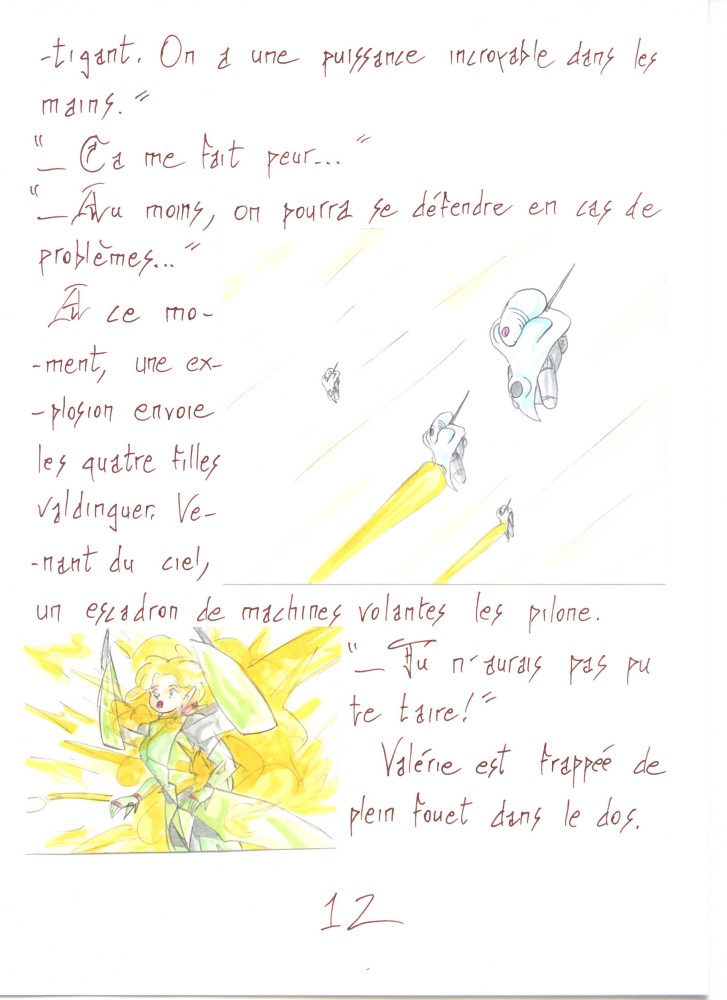 -tigant. On a une puissance incroyable dans les
mains."
"_ Ça me fait peur..."
"_ Au moins, on pourra se défendre en cas de
problèmes..."
A ce mo-
-ment, une ex-
-plosion envoie
les quatre filles
valdinguer. Ve-
-nant du ciel,
un escadron de machines volantes les pilone.
"_ Tu n'aurais pas pu
te taire!"
Valérie est frappée de
plein fouet dans le dos.
12